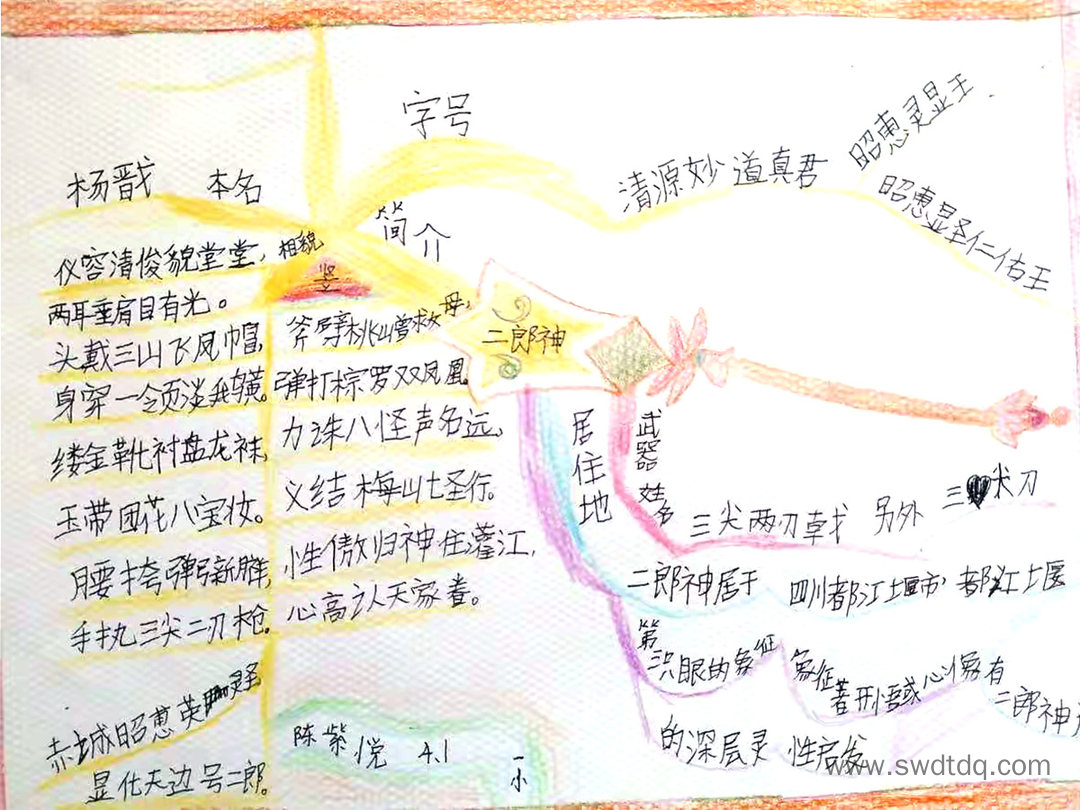 字号
杨戬 本名
清源妙道真君
昭惠灵显王
昭惠显圣仁佑王
简介
相貌
竖
二郎神
仪容清俊貌堂堂,
两耳垂肩目有光。
头戴三山飞凤帽,
身穿一领淡鹅黄。
缕金靴衬盘龙袜,
玉带团花八宝妆。
腰挎弹弓新月样,
手执三尖二刃枪。
赤城昭惠英灵圣,
显化无边号二郎。
斧劈桃山曾救母,
弹打棕罗双凤凰。
力诛八怪声名远,
义结梅山七圣行。
性傲归神住灌江,
心高不认天家眷。
居住地
武器
姓名
三尖两刃戟 另外 三尖刀
二郎神居于 四川都江堰市 都江堰
第三只眼的象征
象征着开悟或心
象有
二郎神
的深层灵性启发
陈紫悦 4.1
一小
www.swdtdq.com